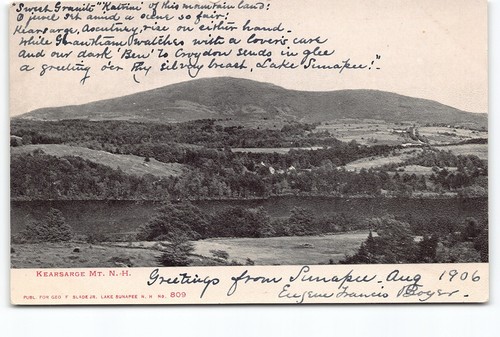 "Sweet Granite "Katrini" of this mountain land!
O jewel set amid a scene so fair!
Kearsarge, Ascutney, rise on either hand
While Grantham watches with a lover's care
And our dark 'Ben' to Croydon sends in glee
a greeting o'er thy silvery breast, Lake Sunapee!"
KEARSARGE MT. N.-H.
Greetings from Sunapee - Aug 1906
Eugene Francis Boyer -
PUBL. FOR GEO F. BLADE JR. LAKE SUNAPEE N. H. No. 809